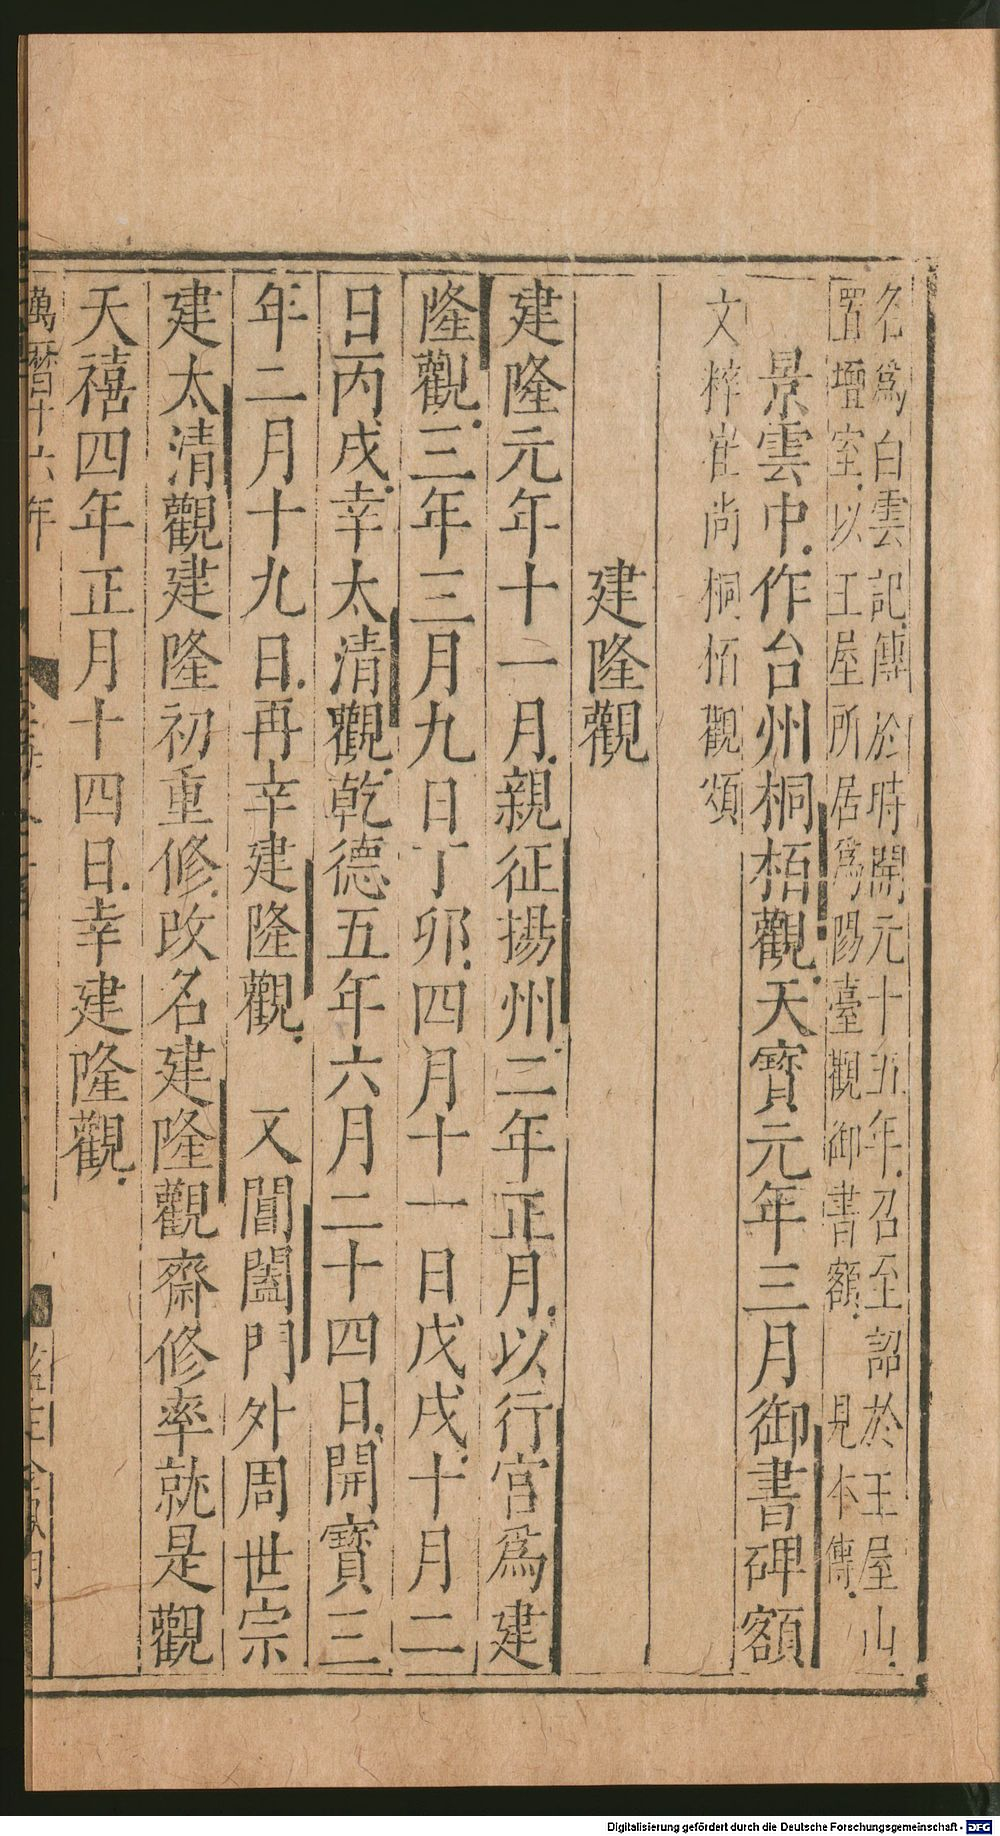 名爲白雲記傳於時開元十五年召至詔於王屋山
置壇室以王屋所居爲陽臺觀御書額 見本傳
景雲中作台州桐栢觀天寶元年三月御書碑額
文粹崔尚桐栢觀頌
建隆觀
建隆元年十一月親征揚州二年正月以行宮爲建
隆觀三年三月九日丁卯四月十一日戊戌十月二
日丙戌幸太清觀乾德五年六月二十四日開寶三
年二月十九日再幸建隆觀 又閶闔門外周世宗
建太清觀建隆初重修改名建隆觀齋修率就是觀
天禧四年正月十四日幸建隆觀
萬曆十六年
Digitalisierung gefördert durch die Deutsche Forschungsgemeinschaft - DFG